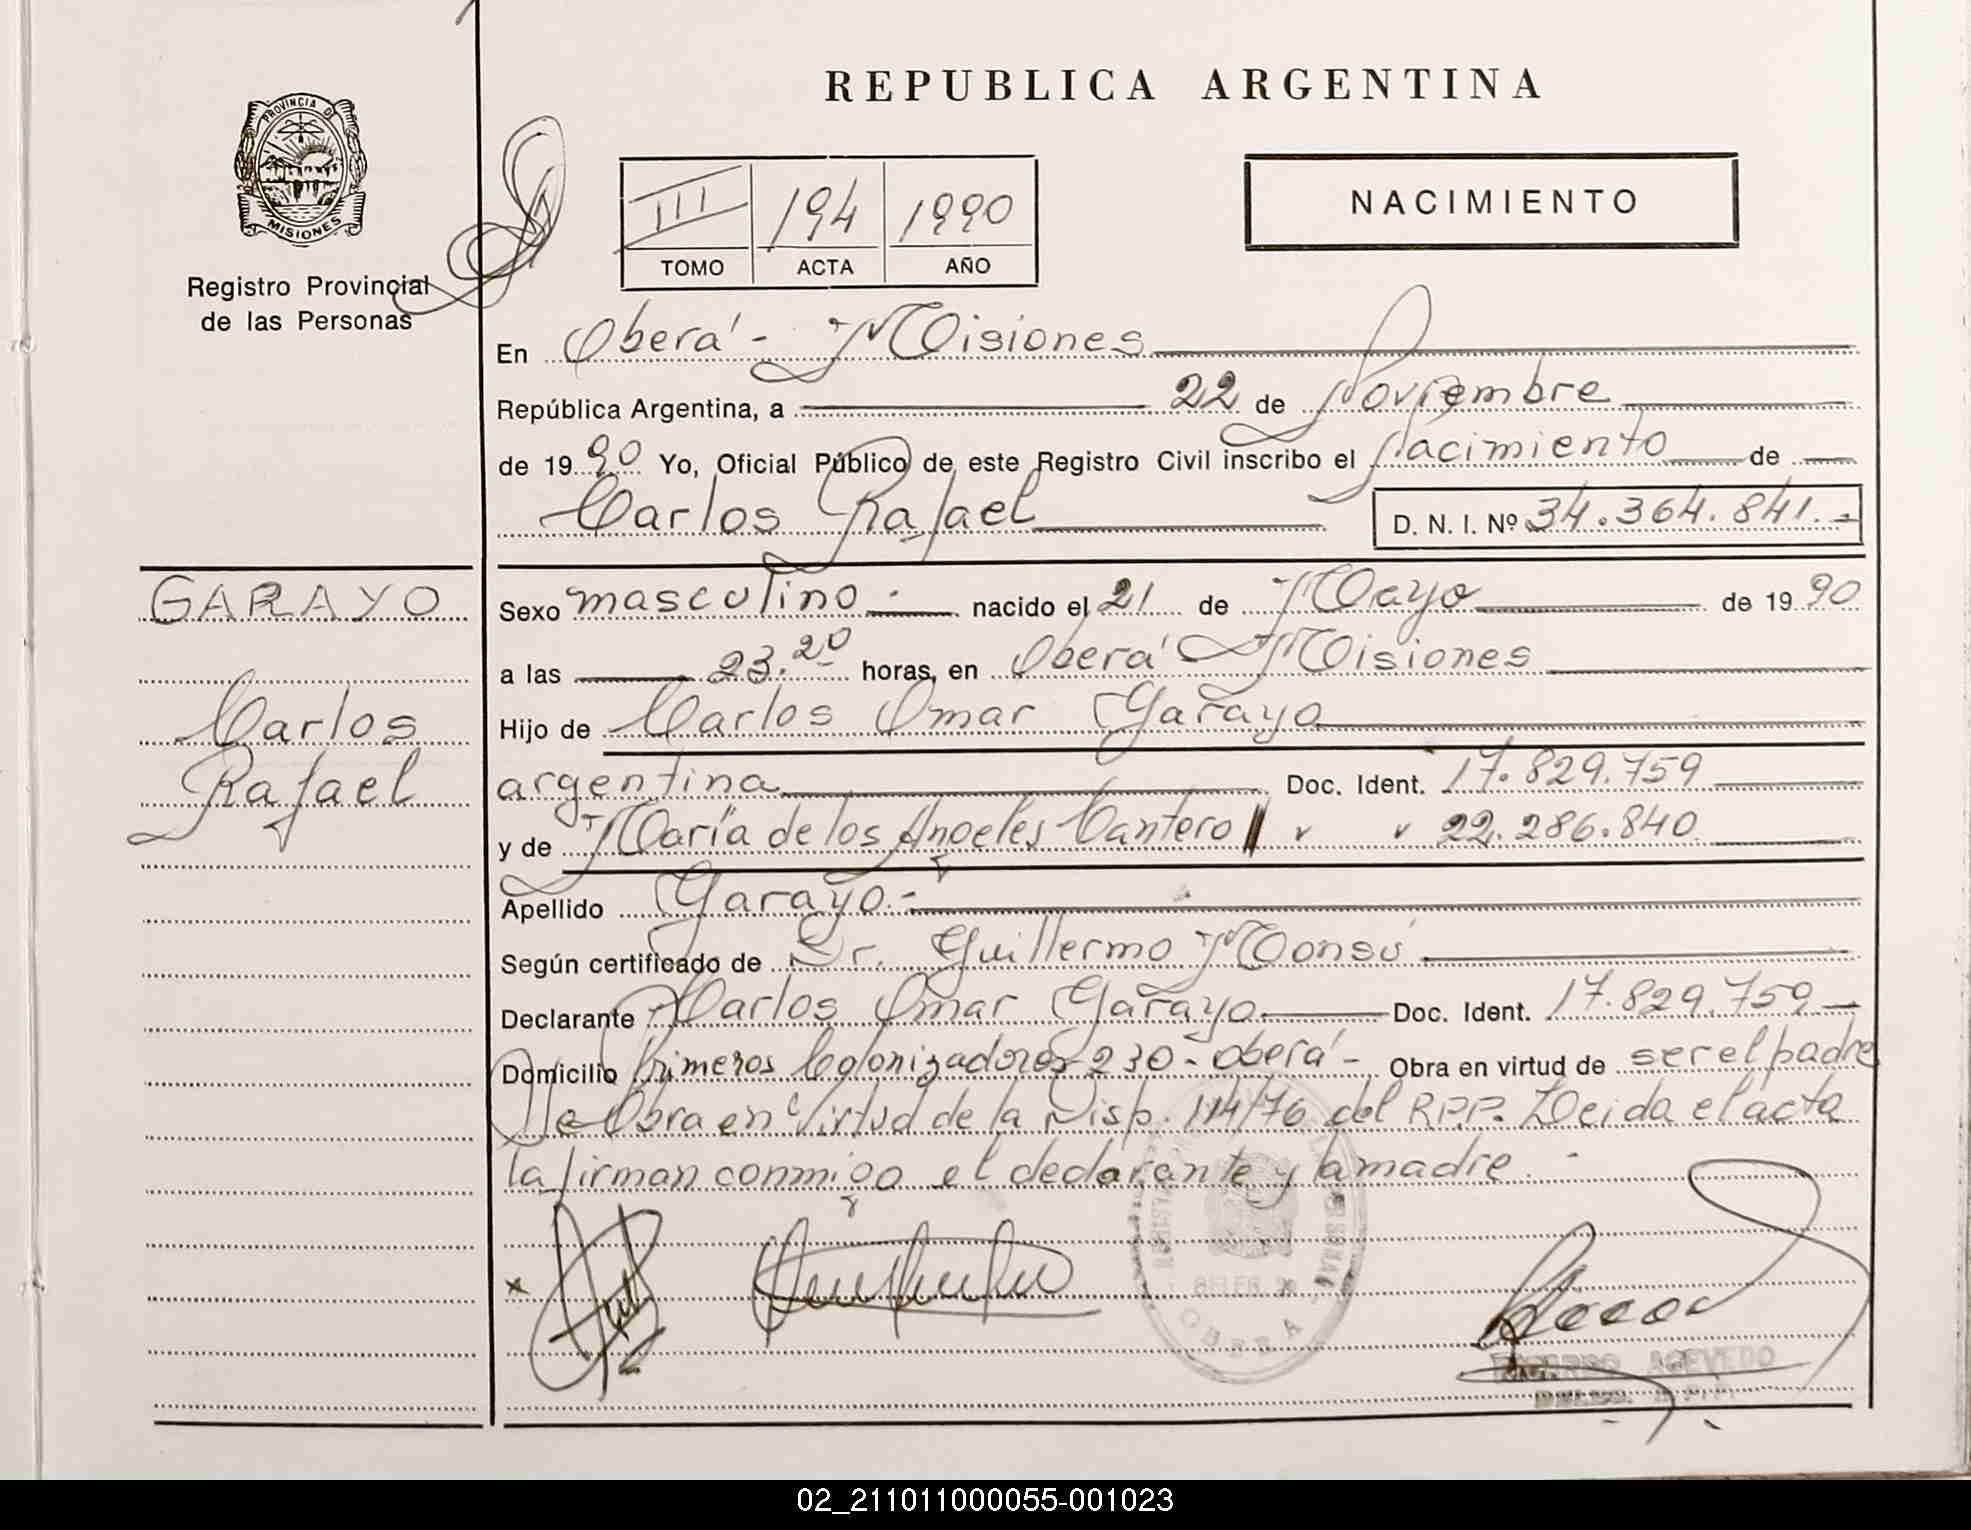 REPUBLICA ARGENTINA
PROVINCIA DE
MISIONES
Registro Provincial
de las Personas
III 194 1990
TOMO ACTA AÑO
NACIMIENTO
En Oberá - Misiones
República Argentina, a 22 de Noviembre
de 1990 Yo, Oficial Público de este Registro Civil inscribo el Nacimiento de
Carlos Rafael D. N. I. Nº 34.364.841.-
GARAYO
Carlos
Rafael
Sexo masculino.- nacido el 21 de Mayo de 1990
a las 23.20 horas, en Oberá - Misiones
Hijo de Carlos Omar Garayo
argentina Doc. Ident. 17.829.759
y de María de los Angeles Cantero || " " 22.286.840
Apellido Garayo.-
Según certificado de Dr. Guillermo Monsú
Declarante Carlos Omar Garayo Doc. Ident. 17.829.759
Domicilio Primeros Colonizadores 230 - Oberá - Obra en virtud de ser el padre
Obra en Virtud de la Disp. 114/76 del RPP. Leida el acta
la firman conmigo el declarante y la madre.-
OBERA
ACEVEDO
02_211011000055-001023